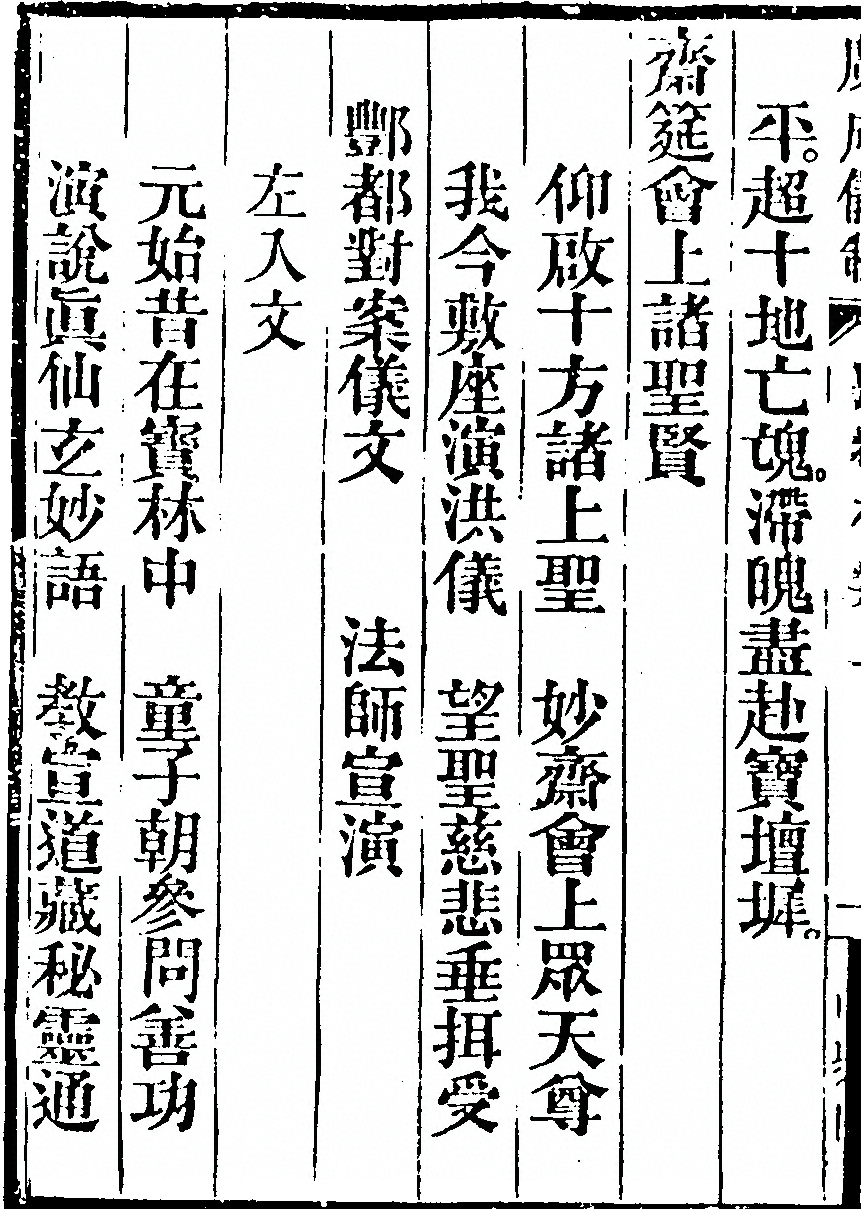 平。超十地亡魂。滯魄盡赴寶壇墀。
齋筵會上諸聖賢
仰啟十方諸上聖　妙齋會上眾天尊
我今敷座演洪儀　望聖慈悲垂拑受
酆都對案儀文　　法師宣演
左入文
元始昔在寶林中　童子朝參問善功
演說眞仙玄妙語　教宣道藏秘靈通